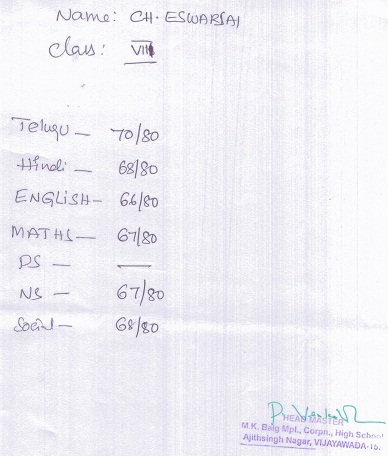 Name: CH. ESWARSAI
Class: VIII
Telugu — 70/80
Hindi — 68/80
ENGLISH — 66/80
MATHS — 67/80
PS — —
NS — 67/80
Social — 68/80
HEAD MASTER
M.K. Baig Mpl., Corpn., High School
Ajithsingh Nagar, VIJAYAWADA-15.